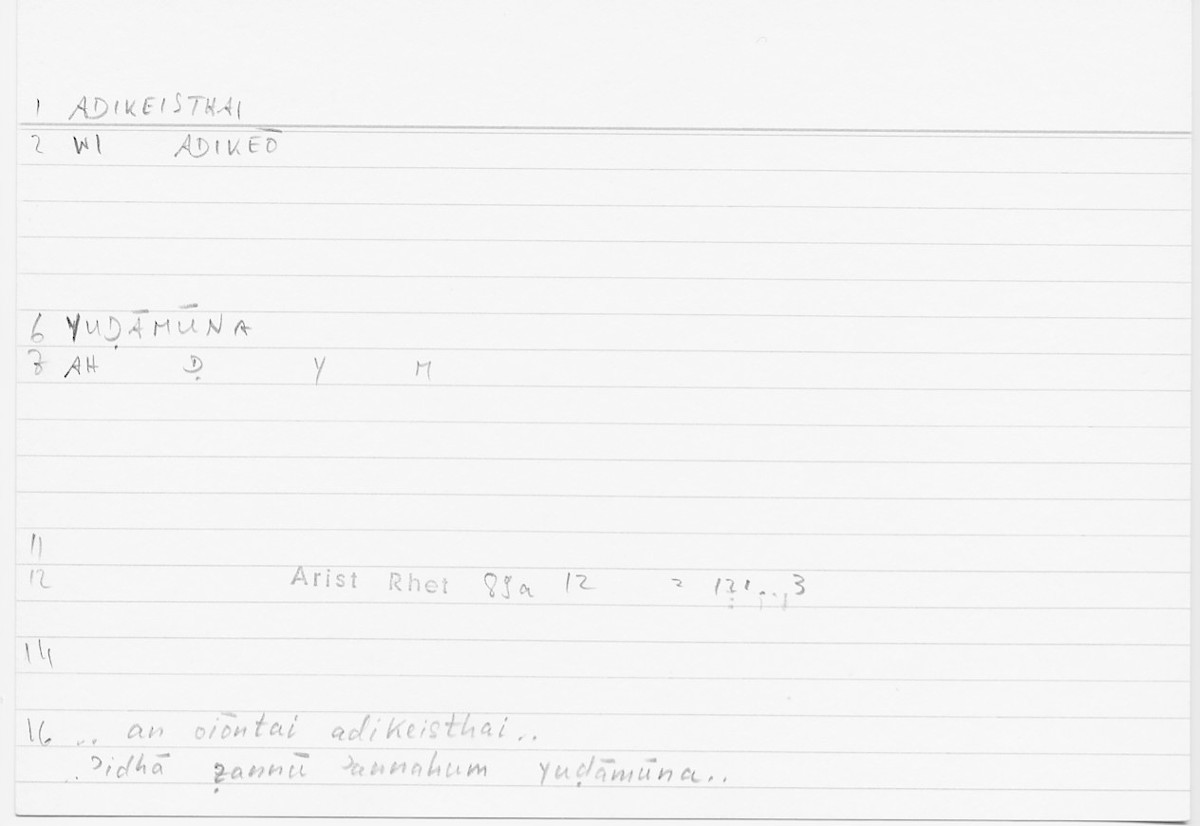 1 ADIKEISTHAI
2 WI ADIKEŌ
6 YUḌĀMŪNA
7 AH Ḍ Y M
11
12 Arist Rhet 89a 12 =
14
16 .. an oiōntai adikeisthai..
..ʾidhā ẓannū ʾannahum yuḍāmūna..